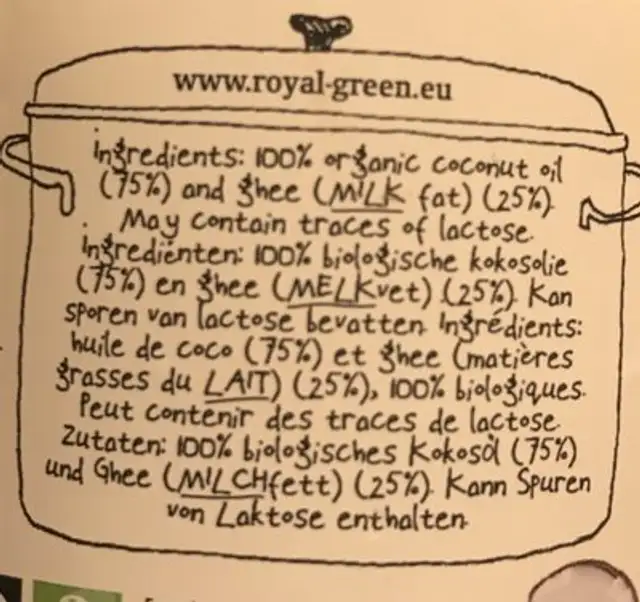 www.royal-green.eu
ingredients: 100% organic coconut oil
(75%) and ghee (MILK fat) (25%).
May contain traces of lactose.
ingrediënten: 100% biologische kokosolie
(75%) en ghee (MELKvet) (25%). Kan
sporen van lactose bevatten. Ingrédients:
huile de coco (75%) et ghee (matières
grasses du LAIT) (25%), 100% biologiques.
Peut contenir des traces de lactose.
Zutaten: 100% biologisches Kokosöl (75%)
und Ghee (MILCHfett) (25%). Kann Spuren
von Laktose enthalten.